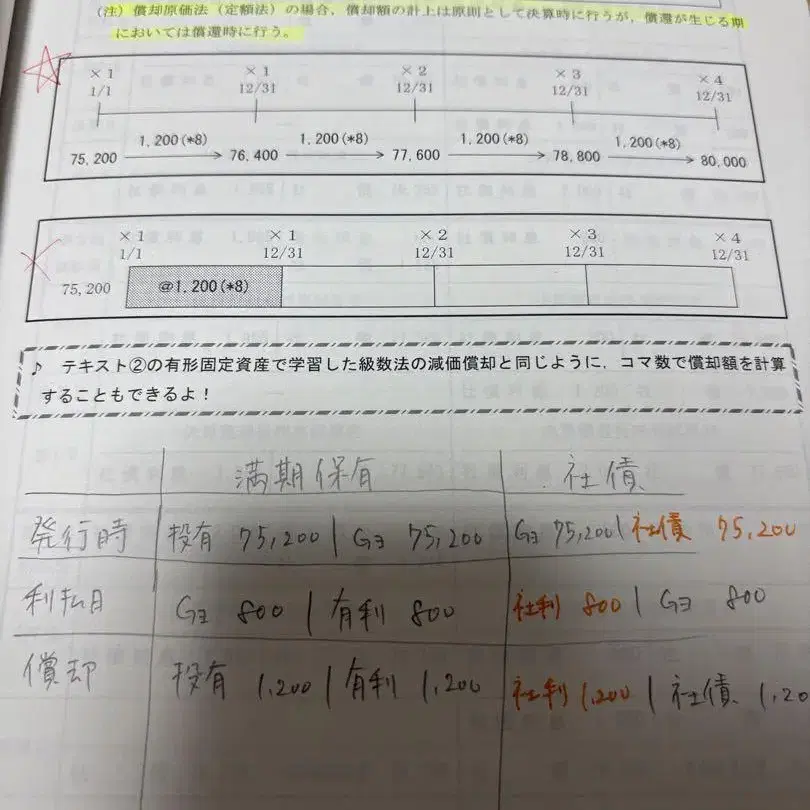 (注) 償却原価法（定額法）の場合，償却額の計上は原則として決算時に行うが，償還が生じる期
においては償還時に行う。
×1 ×1 ×2 ×3 ×4
1/1 12/31 12/31 12/31 12/31
1,200(*8) 1,200(*8) 1,200(*8) 1,200(*8)
75,200 → 76,400 → 77,600 → 78,800 → 80,000
×1 ×1 ×2 ×3 ×4
1/1 12/31 12/31 12/31 12/31
75,200 @1,200(*8)
♪ テキスト②の有形固定資産で学習した級数法の減価償却と同じように，コマ数で償却額を計算
することもできるよ！
満期保有 社債
発行時 投有 75,200 | Gヨ 75,200 Gヨ 75,200 | 社債 75,200
利払日 Gヨ 800 | 有利 800 社利 800 | Gヨ 800
償却 投有 1,200 | 有利 1,200 社利 1,200 | 社債 1,20